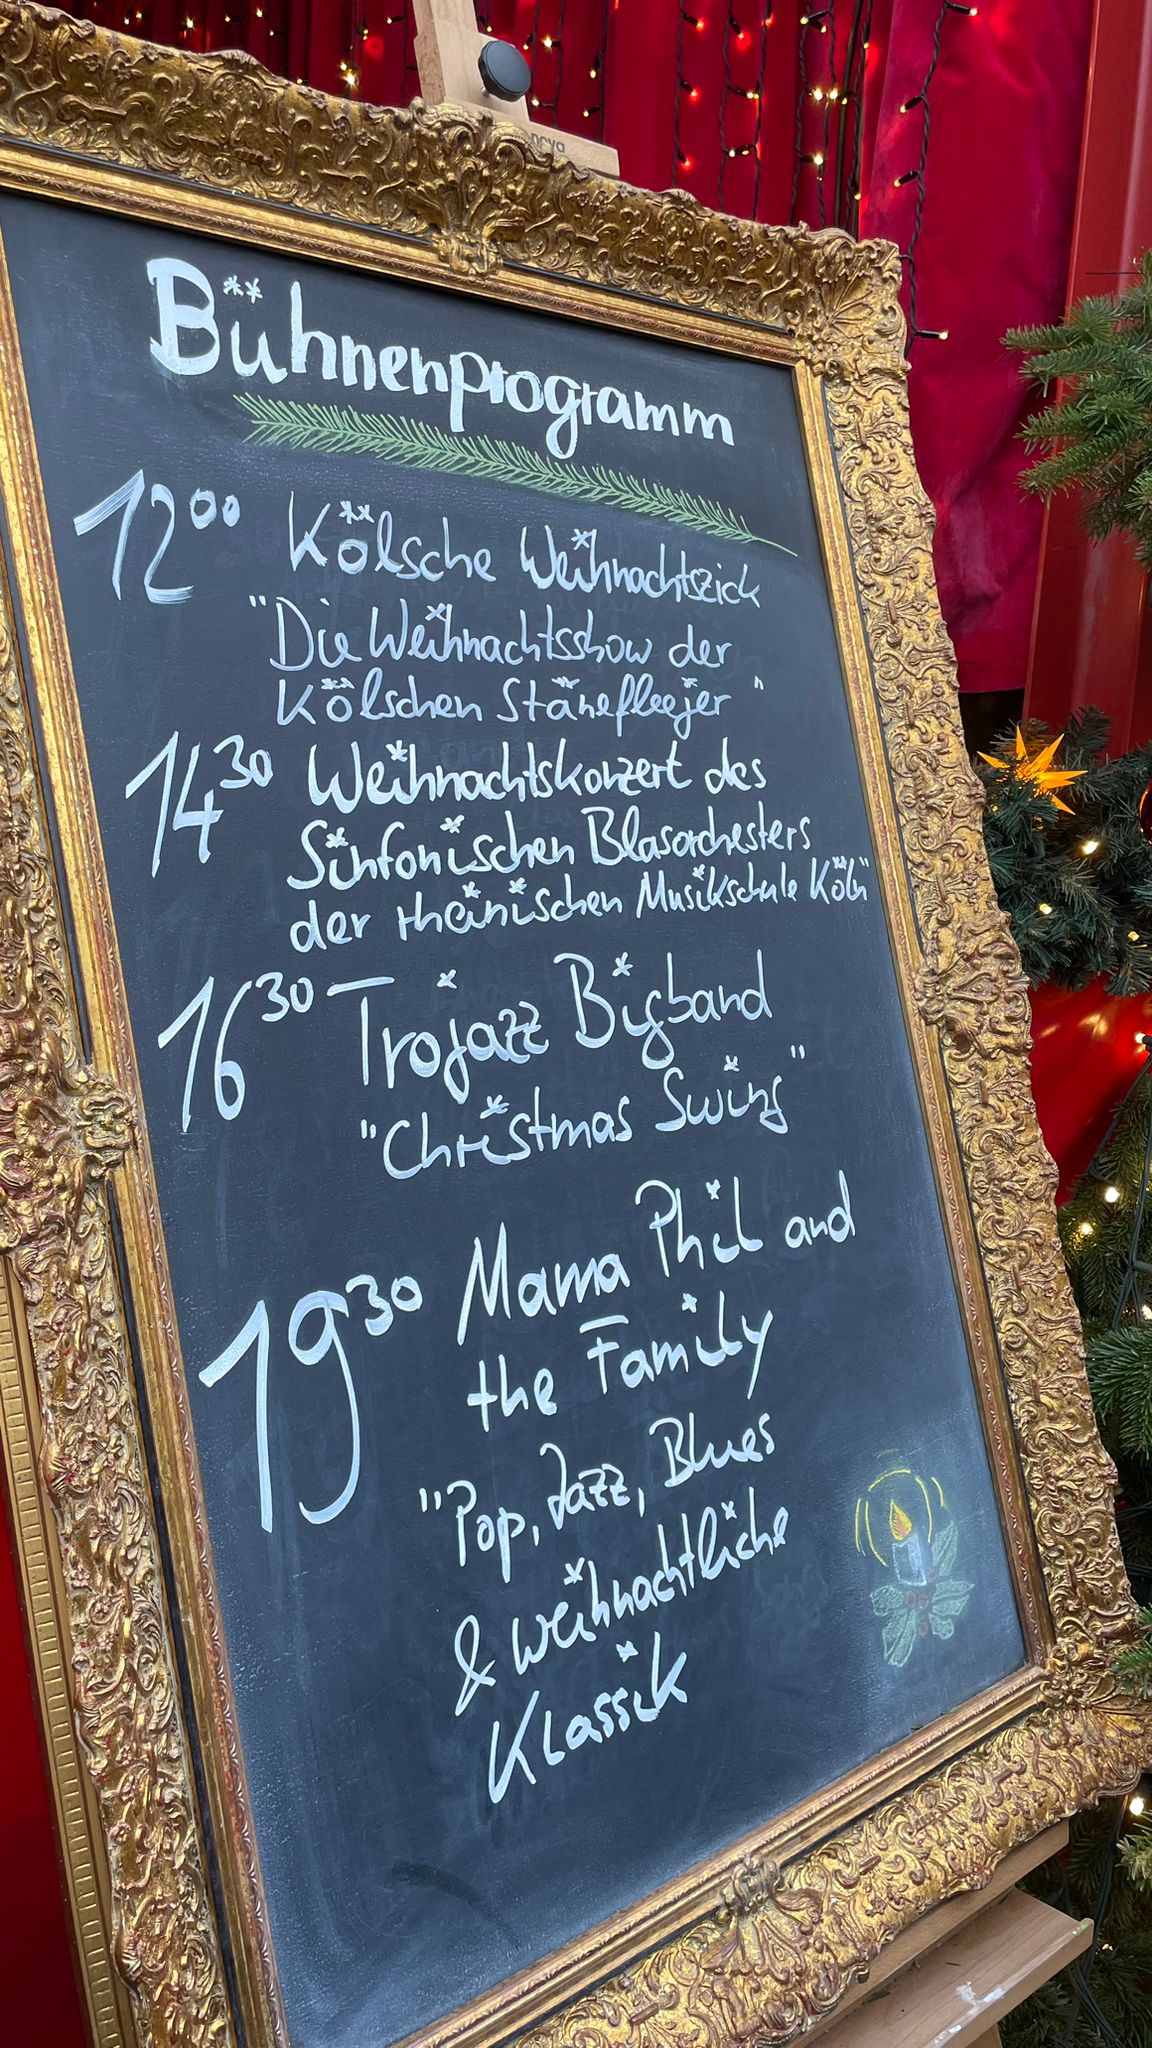 nova
Bühnenprogramm
12⁰⁰ Kölsche Weihnachtszick
"Die Weihnachtsshow der
Kölschen Stänefleejer"
14³⁰ Weihnachtskonzert des
Sinfonischen Blasorchesters
der rheinischen Musikschule Köln"
16³⁰ Trojazz Bigband
"Christmas Swing"
19³⁰ Mama Phil and
the Family
"Pop, Jazz, Blues
& weihnachtliche
Klassik